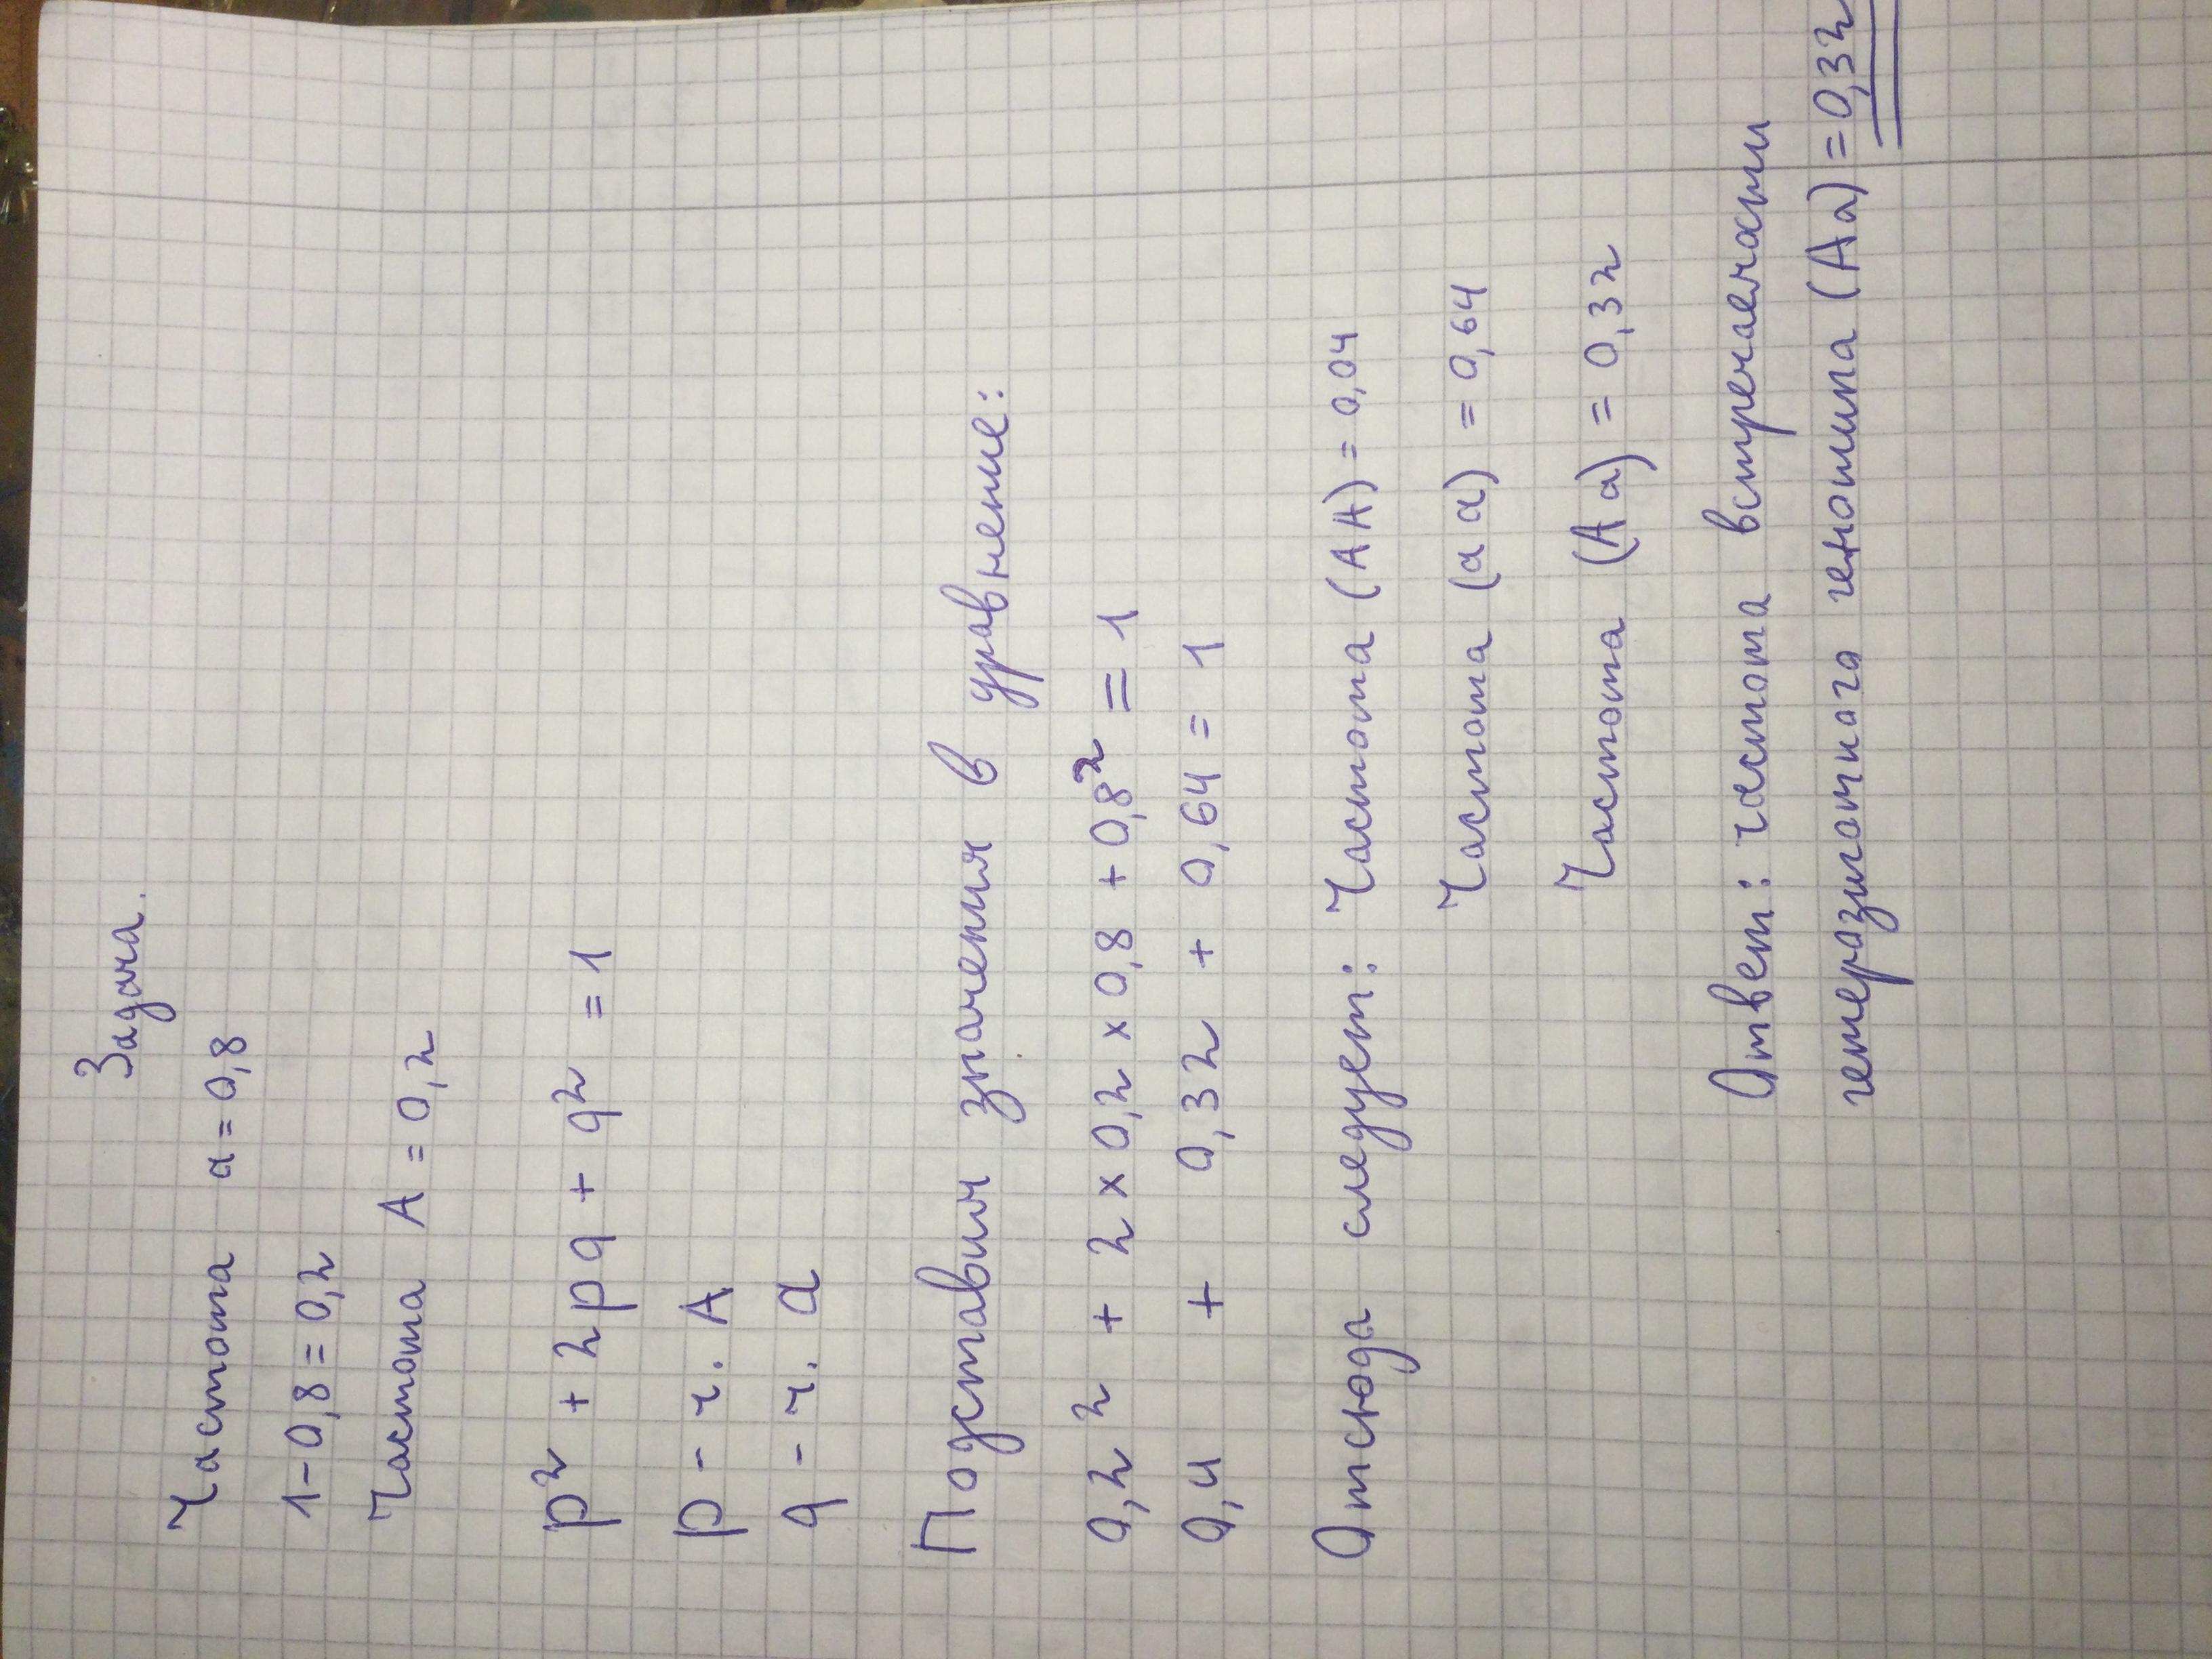 Задача.
Частота а = 0,8
1-0,8 = 0,2
Частота А = 0,2
p² + 2pq + q² = 1
p - ч. А
q - ч. а
Подставим значения в уравнение:
0,2² + 2 × 0,2 × 0,8 + 0,8² = 1
0,4 + 0,32 + 0,64 = 1
Отсюда следует: Частота (АА) = 0,04
Частота (аа) = 0,64
Частота (Аа) = 0,32
Ответ: частота встречаемости
гетерозиготного генотипа (Аа) = 0,32